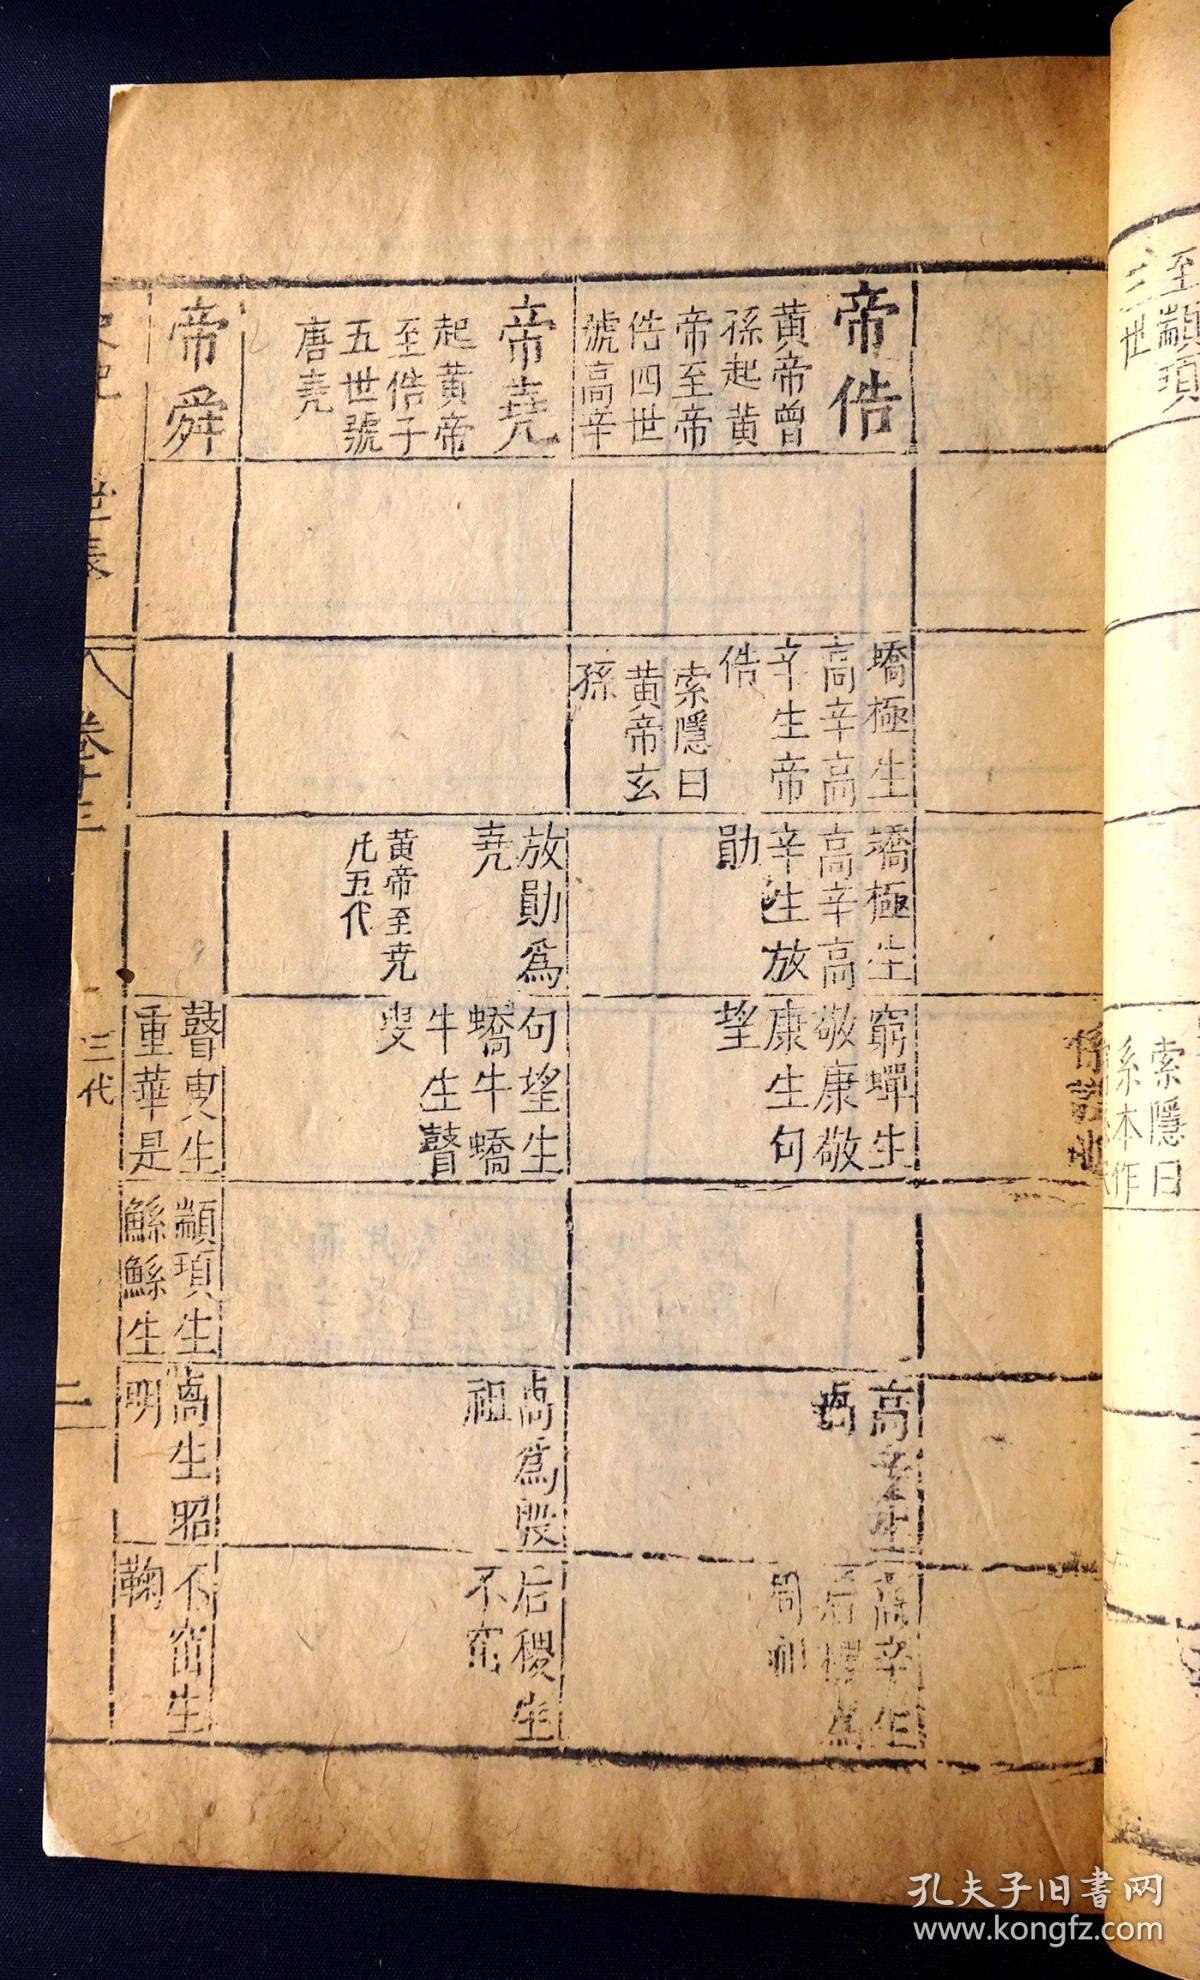 至顓頊
三世
索隱曰
系本作
帝俈
黃帝曾
孫起黃
帝至帝
俈四世
號高辛
蟜極生
高辛高
辛生帝
俈
索隱曰
黃帝玄
孫
蟜極生
高辛高
辛生放
勛
窮蟬生
敬康敬
康生句
望
高辛生
卨
高辛生
后稷爲
周祖
帝堯
起黃帝
至俈子
五世號
唐堯
放勛爲
堯
黃帝至堯
凡五代
句望生
蟜牛蟜
牛生瞽
叟
卨爲殷
祖
后稷生
不窋
帝舜
瞽叟生
重華是
顓頊生
鯀鯀生
卨生昭
明
不窋生
鞠
世表
卷十三
三代
二
孔夫子旧书网
www.kongfz.com